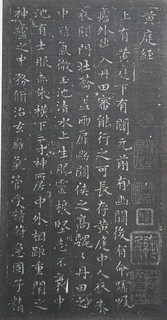 黃庭經
上有黃庭下有關元前有幽闕後有命嘘吸
廬外出入丹田審能行之可長存黃庭中人衣朱
衣關門壯籥蓋兩扉幽闕俠之高魏魏丹田之
中精氣微玉池清水上生肥靈根堅志不衰中
池有士服赤朱橫下三寸神所居中外相距重閉之
神廬之中務脩治玄廱氣管受精符急固子精